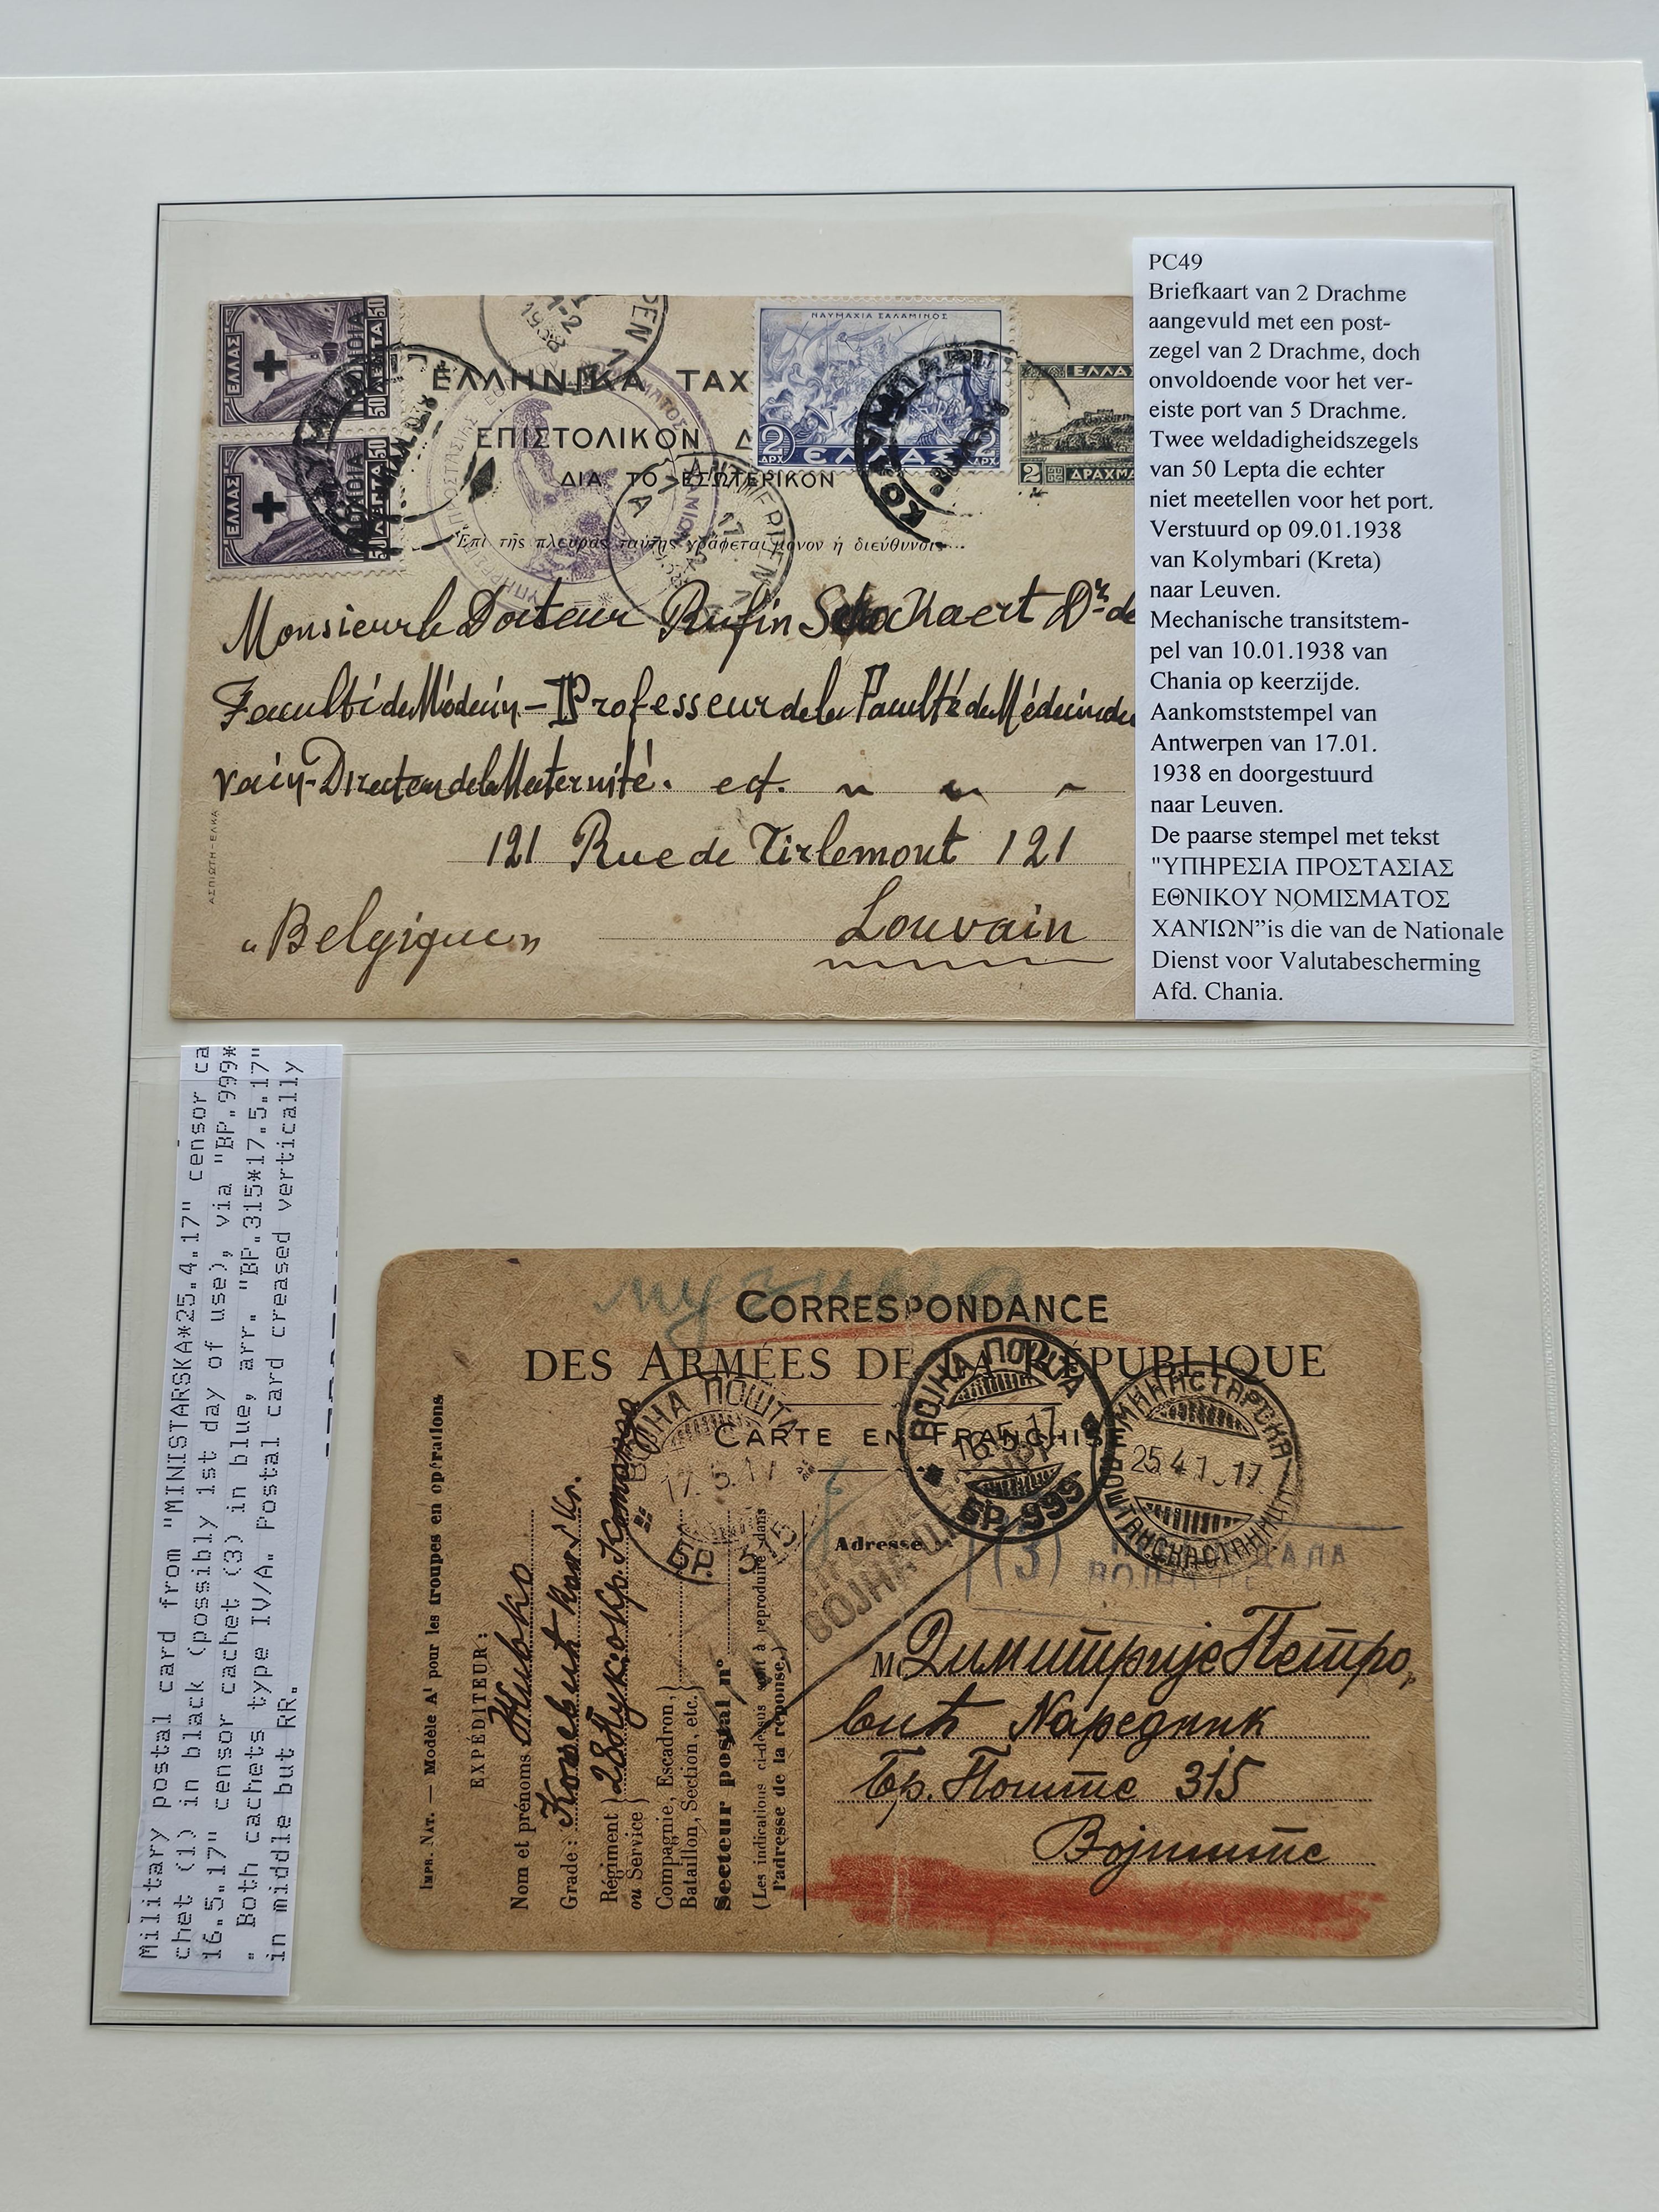 ΕΛΛΑΣ
50 ΛΕΠΤΑ 50
ΕΛΛΑΣ
50 ΛΕΠΤΑ 50
ΕΛΛΗΝΙΚΑ ΤΑΧ
ΕΠΙΣΤΟΛΙΚΟΝ Δ
ΔΙΑ ΤΟ ΕΣΩΤΕΡΙΚΟΝ
Ἐπὶ τῆς πλευρᾶς ταύτης γράφεται μόνον ἡ διεύθυνσις
ΝΑΥΜΑΧΙΑ ΣΑΛΑΜΙΝΟΣ
2 ΔΡΧ ΕΛΛΑΣ 2 ΔΡΧ
ΕΛΛΑΣ
2 ΔΡΑΧΜΑ
Monsieur le Docteur Rufin Schockaert Dr de
Faculté de Médecin - Professeur de la Faculté de Médecin de
vain - Directeur de la Maternité. ect.
121 Rue de Tirlemont 121
„Belgique" Louvain
ΑΣΠΙΩΤΗ-ΕΛΚΑ
PC49
Briefkaart van 2 Drachme
aangevuld met een post-
zegel van 2 Drachme, doch
onvoldoende voor het ver-
eiste port van 5 Drachme.
Twee weldadigheidszegels
van 50 Lepta die echter
niet meetellen voor het port.
Verstuurd op 09.01.1938
van Kolymbari (Kreta)
naar Leuven.
Mechanische transitstem-
pel van 10.01.1938 van
Chania op keerzijde.
Aankomststempel van
Antwerpen van 17.01.
1938 en doorgestuurd
naar Leuven.
De paarse stempel met tekst
"ΥΠΗΡΕΣΙΑ ΠΡΟΣΤΑΣΙΑΣ
ΕΘΝΙΚΟΥ ΝΟΜΙΣΜΑΤΟΣ
ΧΑΝΊΩΝ”is die van de Nationale
Dienst voor Valutabescherming
Afd. Chania.
Military postal card from "MINISTARSKA*25.4.17" censor ca
chet (1) in black (possibly 1st day of use), via "BP.999*
16.5.17" censor cachet (3) in blue, arr. "BP.315*17.5.17"
. Both cachets type IV/A. Postal card creased vertically
in middle but RR.
CORRESPONDANCE
DES ARMÉES DE LA RÉPUBLIQUE
CARTE EN FRANCHISE
ВОЈНА ПОШТА
16.5.17
БР. 999
МИНИСТАРСКА
25 4 1 17
ПОШТАНСКА СТАНИЦА
ВОЈНА ПОШТА
17.5.17
БР. 315
(3)
IMPR. NAT. — Modèle A¹ pour les troupes en opérations
EXPÉDITEUR:
Nom et prénoms Живко
Grade:
Régiment
ou Service
Compagnie, Escadron,
Bataillon, Section, etc.
Secteur postal n°
(Les indications ci-dessus sont à reproduire dans
l'adresse de la réponse.)
Adresse
M. Димитрије Петро,
вић Наредник
Бр. Поште 315
Војниште